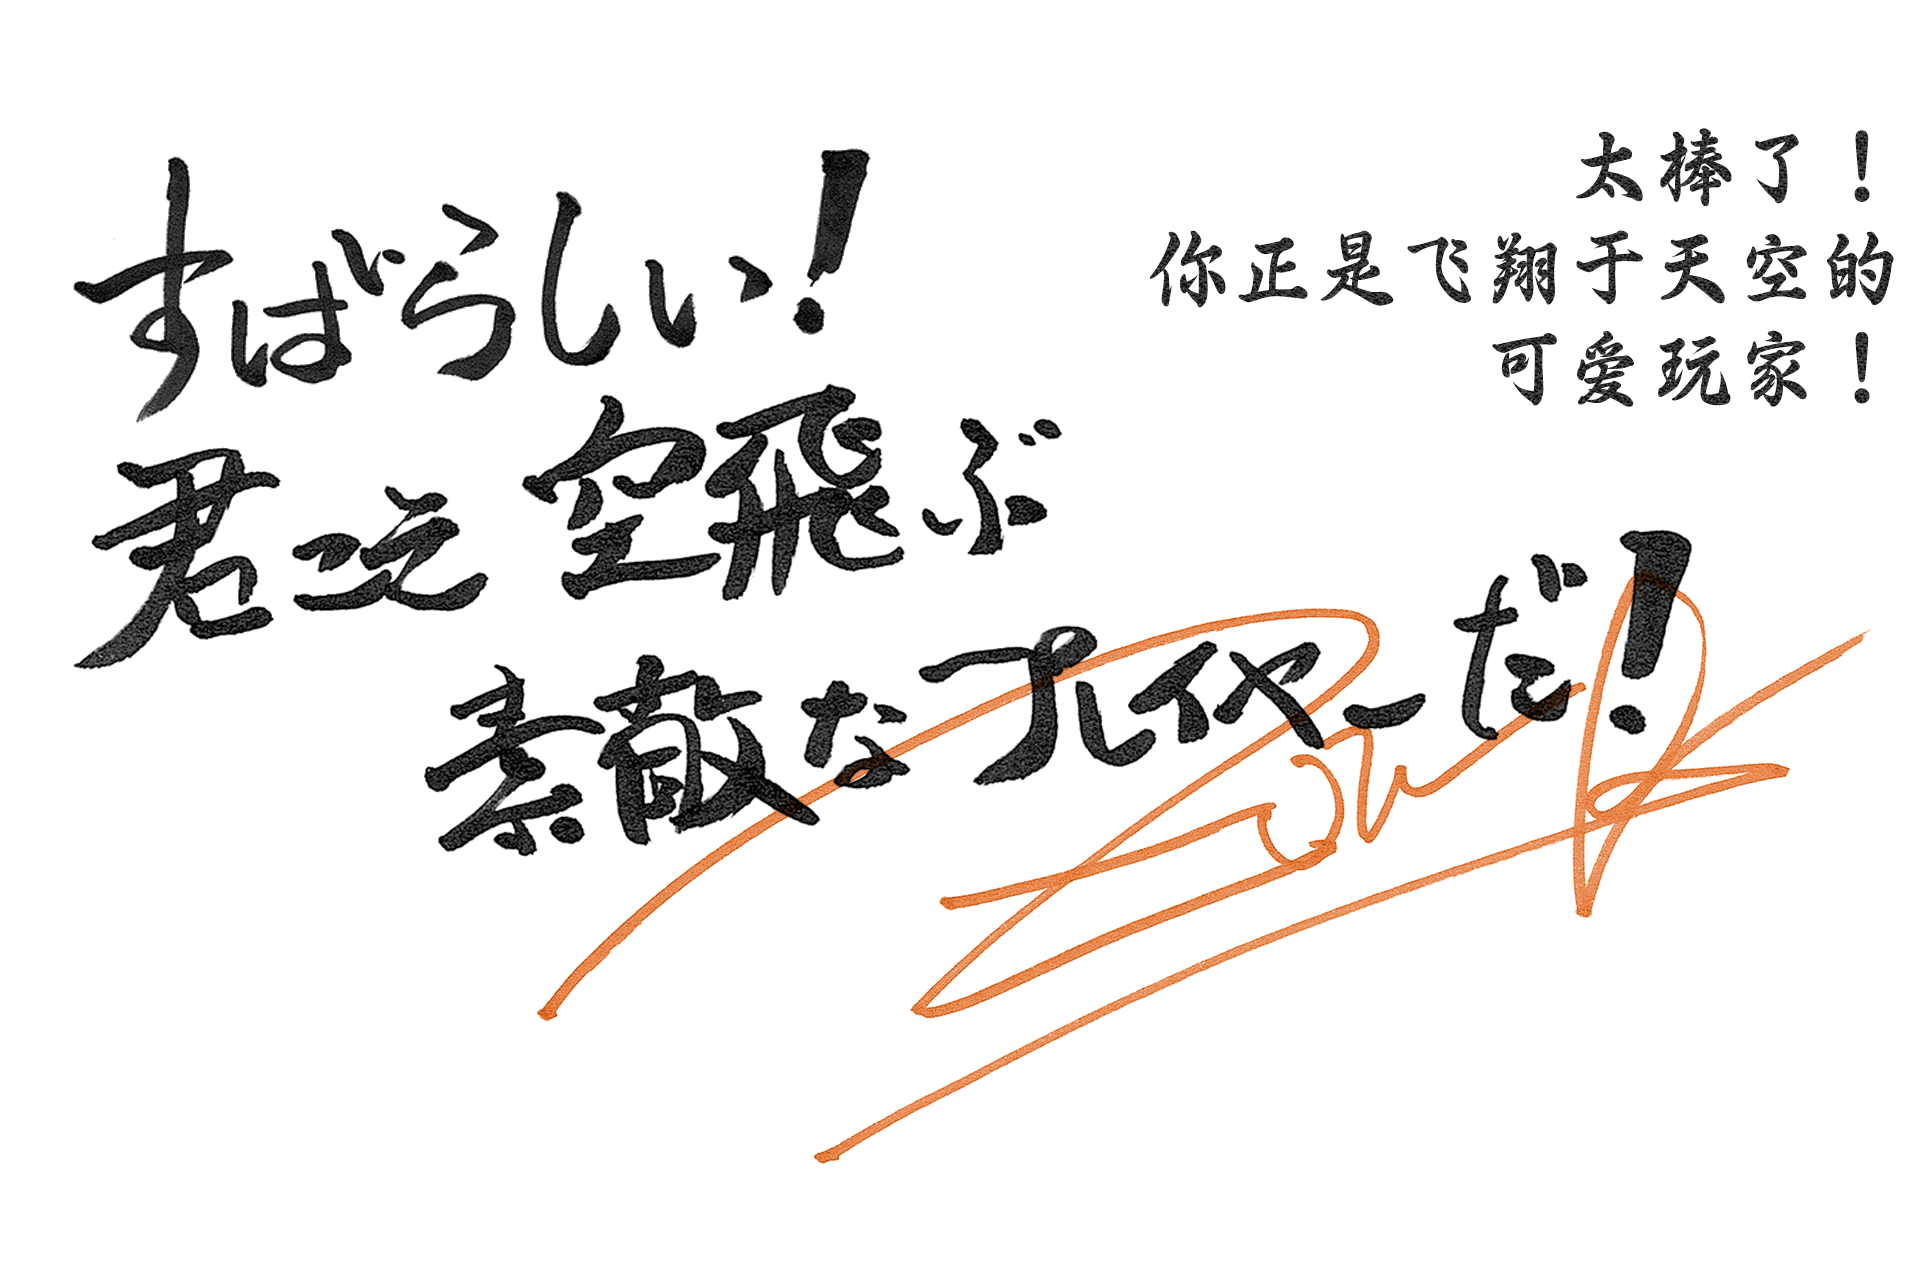 すばらしい!
君こそ空飛ぶ
素敵なプレイヤーだ!
太棒了!
你正是飞翔于天空的
可爱玩家!